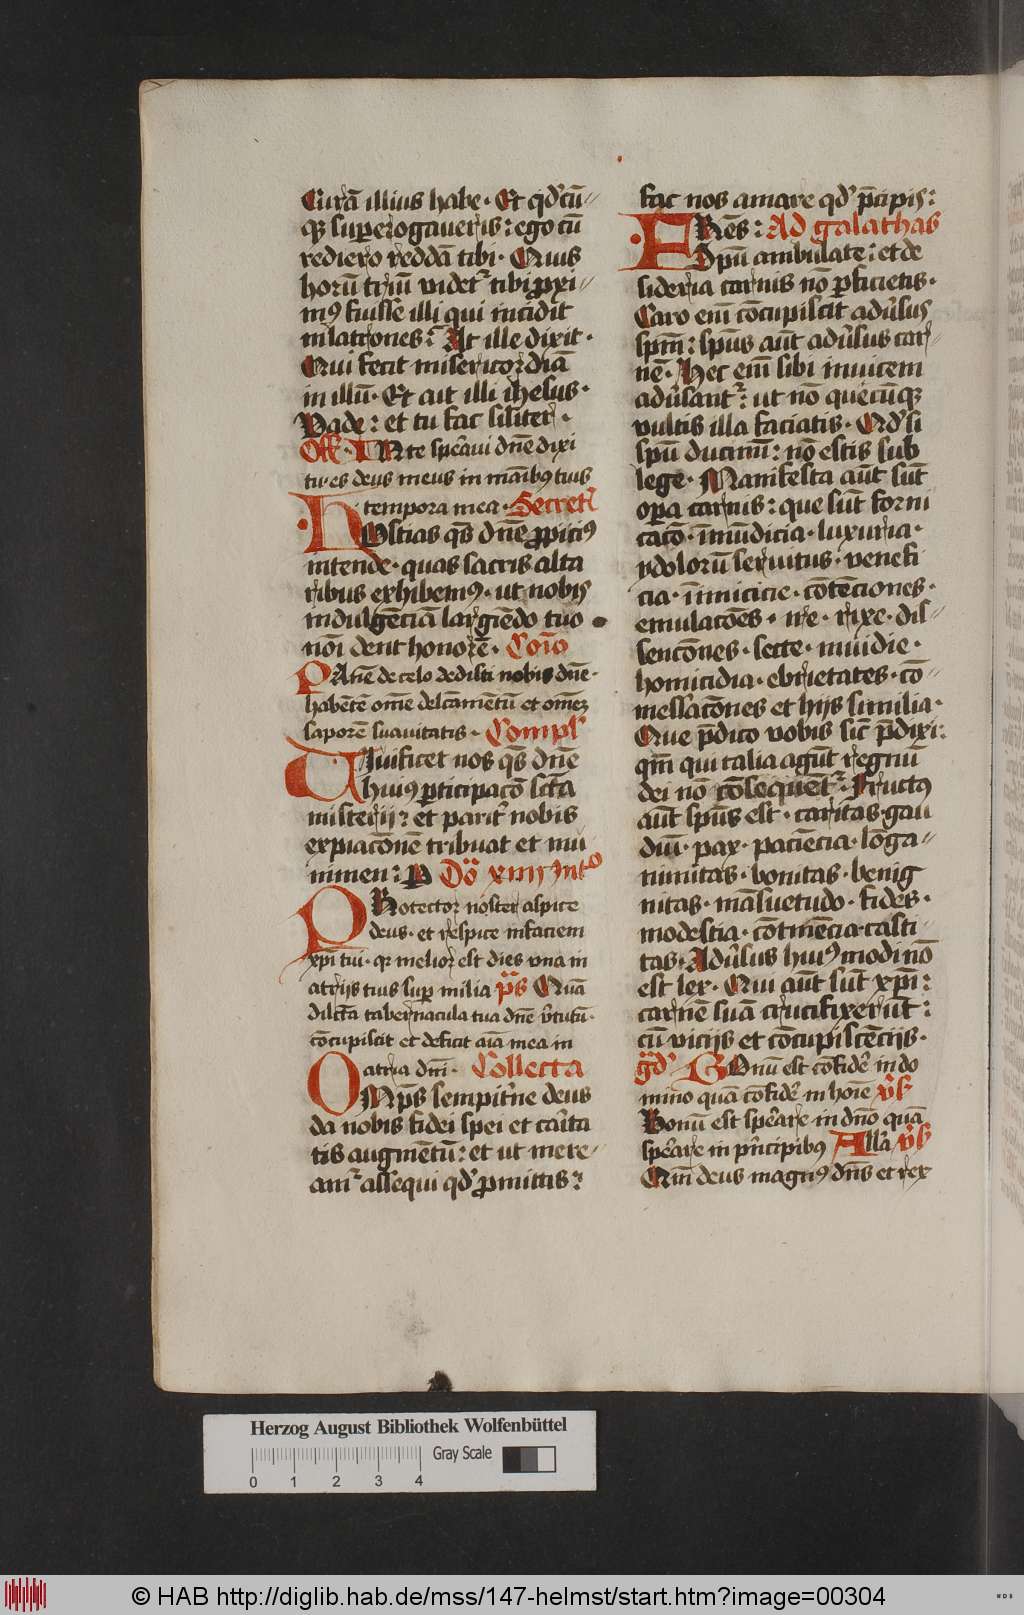 Curā illius habe · Et qd̉cū=
qꝫ suꝑerogaueris : ego cū
rediero reddā tibi · Quis
horū triū videt᷑ tibi ꝓxi=
mꝰ fuisse illi qui incidit
in latrones : At ille dixit ·
Qui fecit misericordiā
in illū · Et ait illi ihesus ·
Vade : et tu fac silĩter ·
Off̃ · IN te speraui dn̄e dixi
tu es deus meus in mãibꝰ tuis
tempora mea · Secret̉
HOstias qs̄ dn̄e ꝓpiciꝰ
intende · quas sacris alta
ribus exhibemꝰ · ut nobis
indulgēciā largiēdo tuo
nōi dent honorē · Cōio
PAnē de celo dedisti nobis dn̄e ·
habētē om̄e delcāmētū et om̄eꝫ
saporē suauitatis · Compl̄
VIuificet nos qs̄ dn̄e
huiꝰ ꝑticipacō sctā
misterij : et parit̉ nobis
expiacōnem tribuat et mu
nimen : P Dō xiiij Int̊
PRotector noster aspice
deus · et respice in faciem
xp̄i tui · qꝛ melior est dies vna in
atrijs tuis suꝑ milia p̄s Quā
dilcta tabernacula tua dn̄e v̉tutū ·
cōcupiscit et deficit aīa mea in
atria dn̄i · Collecta
OMp̄s sempit̉ne deus
da nobis fidei spei et cãrita
tis augmētū : et ut mere=
am᷑ assequi qd̉ ꝓmittis :
fac nos amare qd̉ p̄cipis :
FRēs : Ad galathas
Spū ambulate : et de
sideria carnis nō ꝑficietis ·
Caro eīm cōcupiscit adūsus
spm̄ : spūs aūt adūsus car=
nē · Hec eīm sibi inuicem
adūsant᷑ : ut nō quecūqꝫ
vultis illa faciatis · Qd̉ si
spū ducimī : nō estis sub
lege · Manifesta aūt sūt
oꝑa carnis : que sūt forni
cacō · īmūdicia · luxuria ·
ydolorū seruitus · venefi
cia · īimicicie · cōtēciones ·
emulacōes · ire · rixe · dis=
sencōnes · secte · inuidie ·
homicidia · ebrietates · cō=
messacōnes et hijs similia ·
Que p̄dico vobis sic̄ p̄dixi :
qm̄ qui talia agūt regnū
dei nō cōsequent᷑ · Fructꝰ
aūt spūs est · caritas · gau
diū · pax · paciēcia · lōga=
nimitas · bonitas · benig
nitas · māsuetudo · fides ·
modestia · cōtinēcia · casti
tas · Adūsus huiꝰmodi nō
est lex · Qui aūt sūt xp̄i :
carnē suā crucifixerūt :
cū vicijs et cōcupiscēcijs ·
gd̄ · BOnū est cōfidẽ in do
mino quā cōfidẽ in hoīe v̉s
Bonū est sperare in dn̄o quā
sperare in pn̄cipibꝰ All̉a v̉s
Qm̄ deus magnꝰ dn̄s et rex
Herzog August Bibliothek Wolfenbüttel
Gray Scale
0 1 2 3 4
© HAB http://diglib.hab.de/mss/147-helmst/start.htm?image=00304